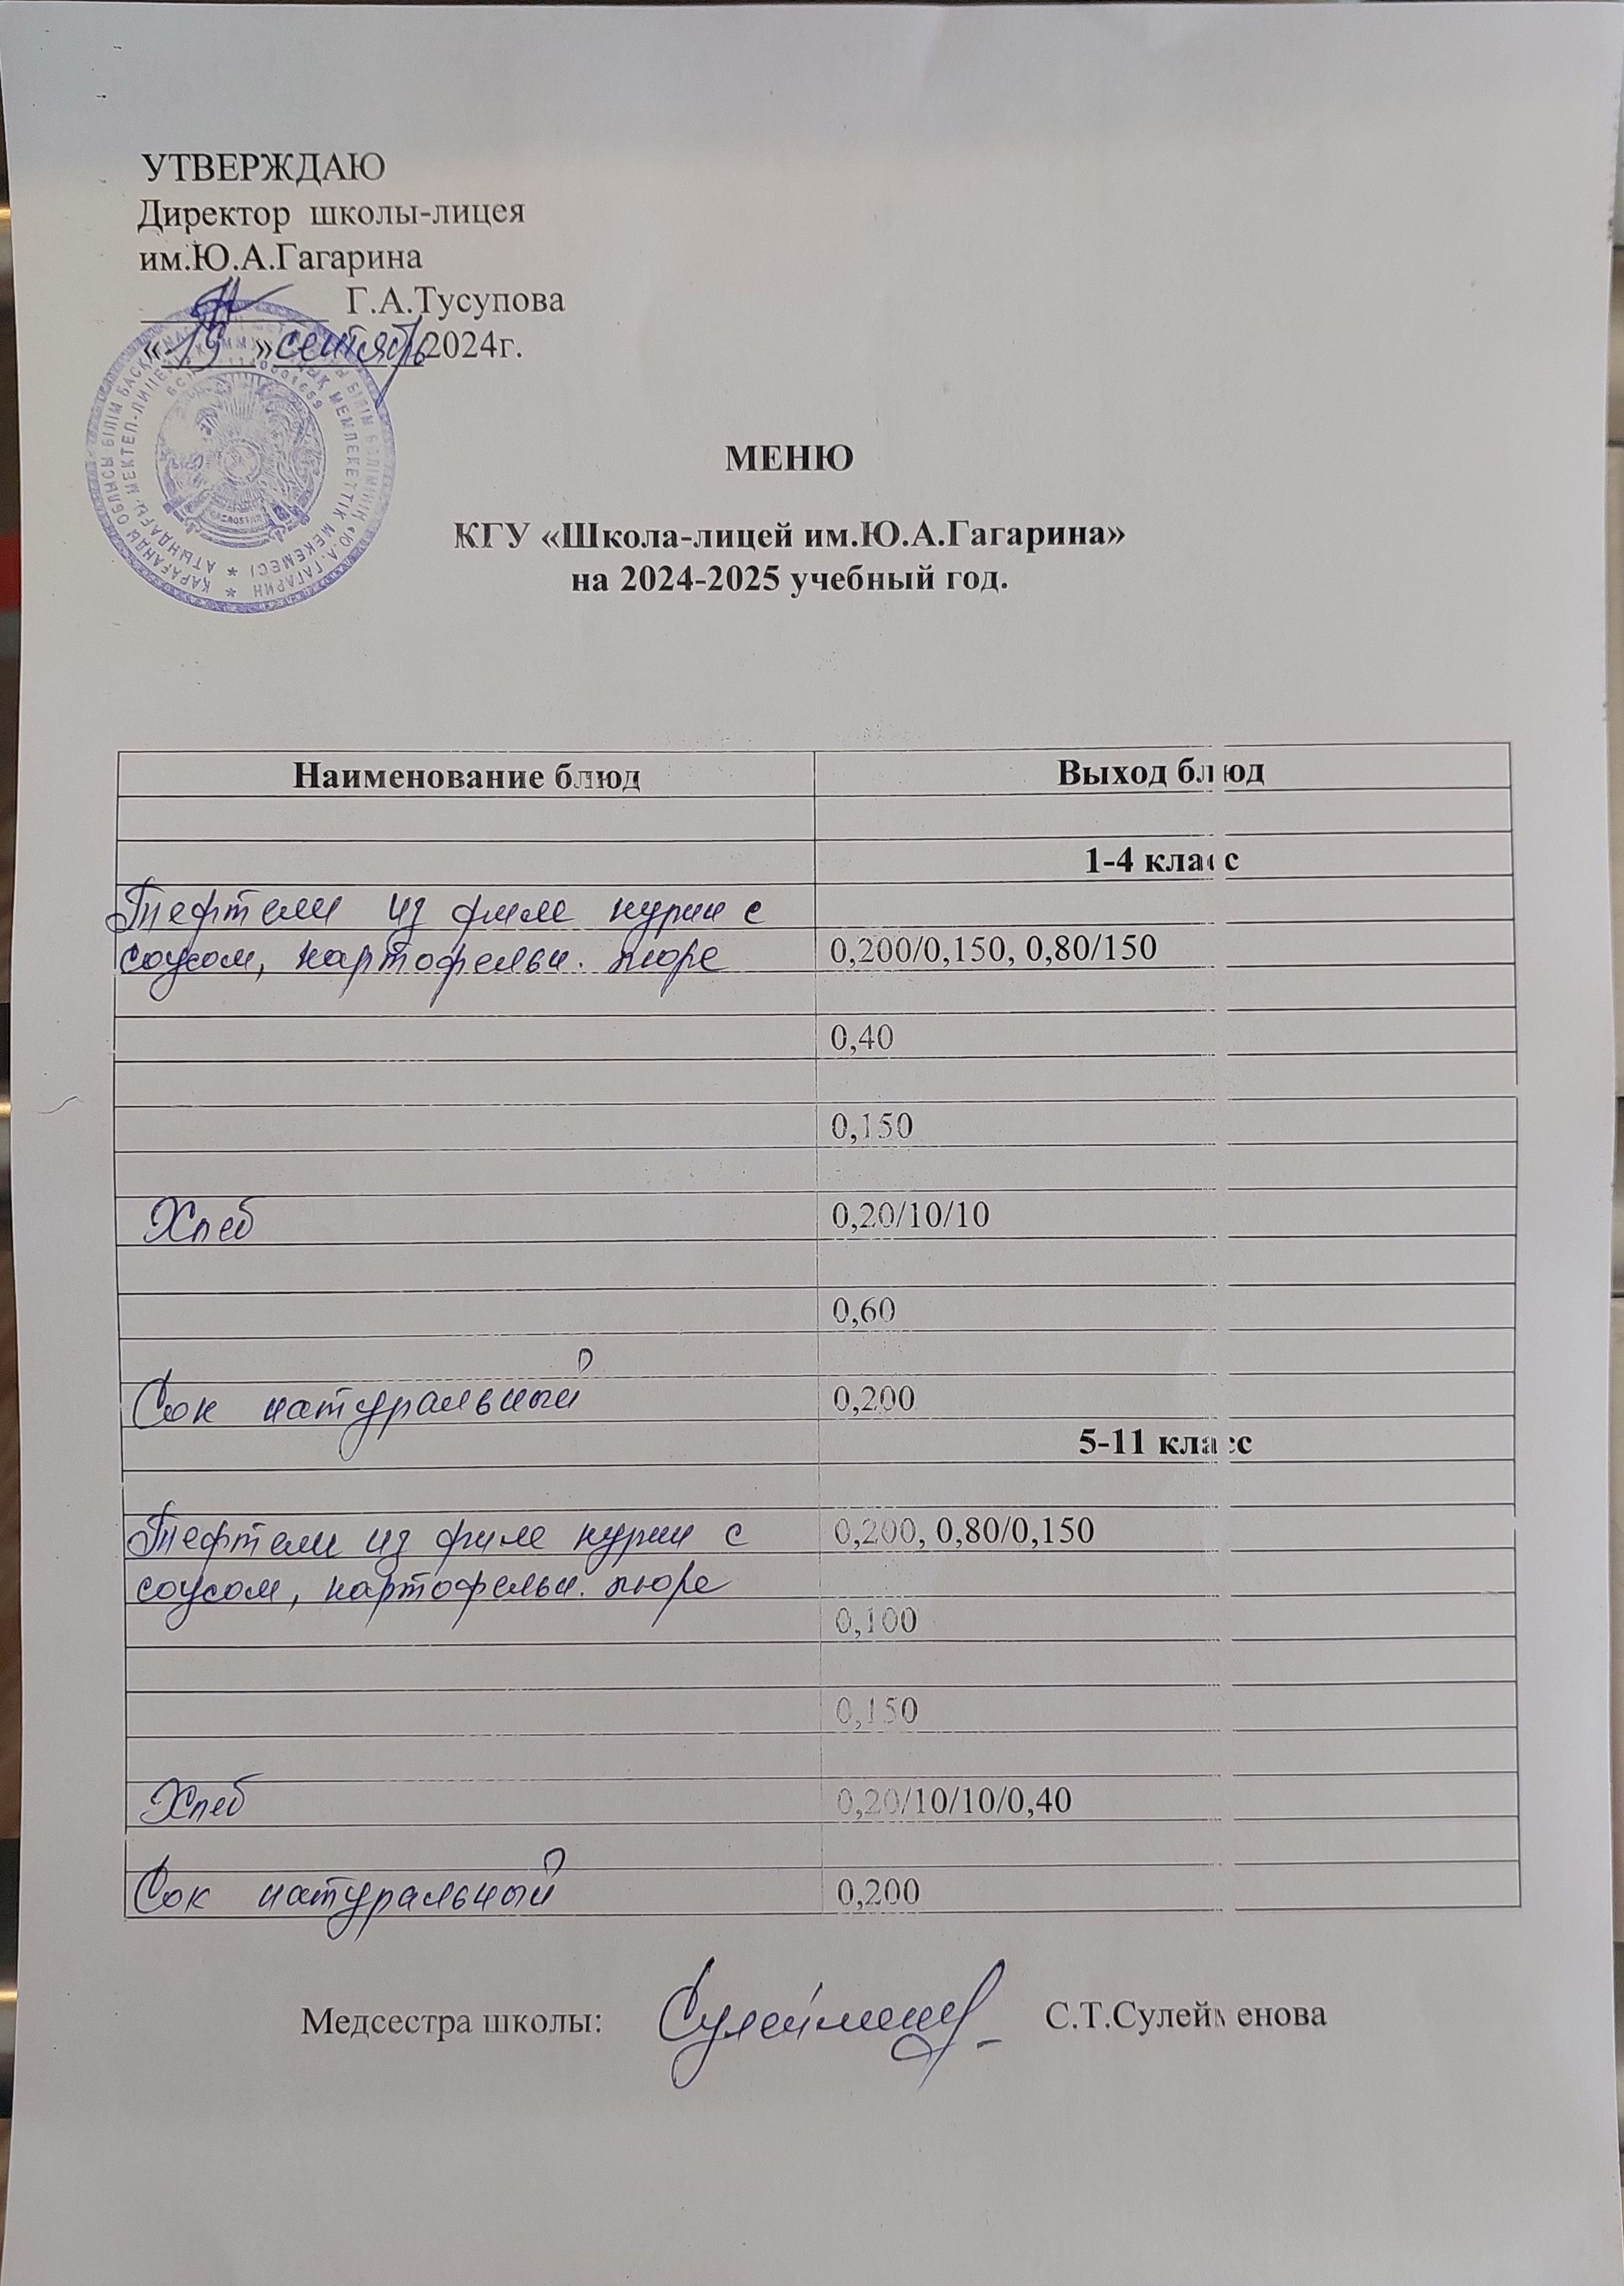 УТВЕРЖДАЮ
Директор школы-лицея
им.Ю.А.Гагарина
Г.А.Тусупова
«19» сентябрь 2024г.
МЕНЮ
КГУ «Школа-лицей им.Ю.А.Гагарина»
на 2024-2025 учебный год.
Наименование блюд Выход блюд
1-4 класс
Тефтели из филе курин с
соусом, картофельн. пюре 0,200/0,150, 0,80/150
0,40
0,150
Хлеб 0,20/10/10
0,60
Сок натуральный 0,200
5-11 класс
Тефтели из филе курин с 0,200, 0,80/0,150
соусом, картофельн. пюре
0,100
0,150
Хлеб 0,20/10/10/0,40
Сок натуральный 0,200
Медсестра школы: С.Т.Сулейменова